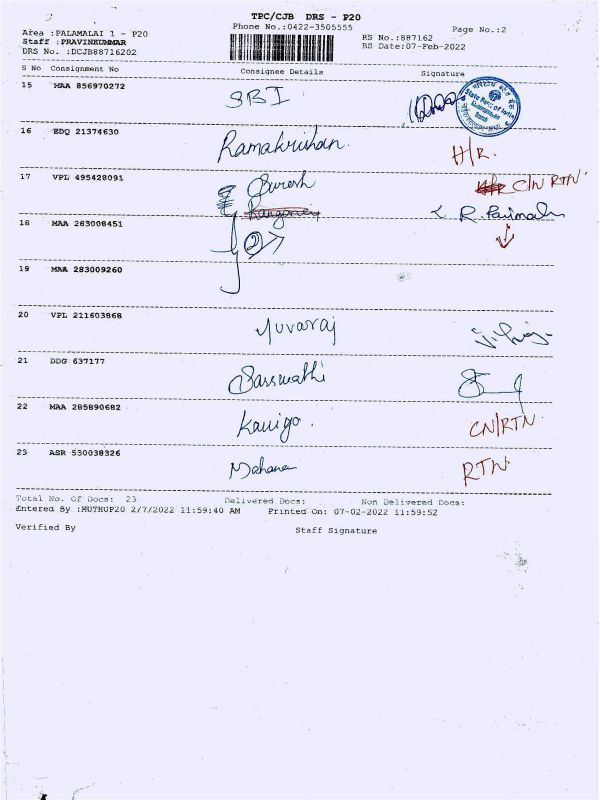 TPC/CJB DRS - P20
Phone No.:0422-3505555
Page No.:2
Area :PALAMALAI 1 - P20
Staff :PRAVINKUMMAR
DRS No. :DCJB88716202
RS No.:887162
RS Date:07-Feb-2022
S No Consignment No Consignee Details Signature
15 MAA 856970272 SBI
State Bank of India
16 EDQ 21374630 Ramakrishan H/R.
17 VPL 495428091 Suresh C/N RTN
18 MAA 283008451 R. Parimala
19 MAA 283009260
20 VPL 211603868 Yuvaraj
21 DDG 637177 Sarswathi
22 MAA 285890682 CN/RTN
23 ASR 530038326 RTN
Total No. Of Docs: 23 Delivered Docs: Non Delivered Docs:
Entered By :MUTHUP20 2/7/2022 11:59:40 AM Printed On: 07-02-2022 11:59:52
Verified By Staff Signature